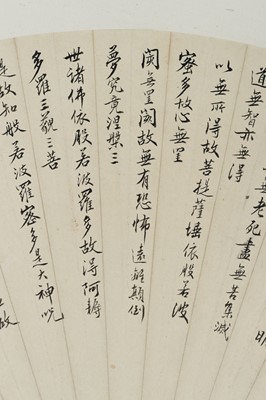 明
無老死盡無苦集滅
道無智亦無得
以無所得故菩提薩埵依般若波
密多故心無罣
閡無罣閡故無有恐怖遠離顛倒
夢究竟涅槃三
世諸佛依般若波羅密多故得阿耨
多羅三藐三菩
是故知般若波羅密多是大神咒
故